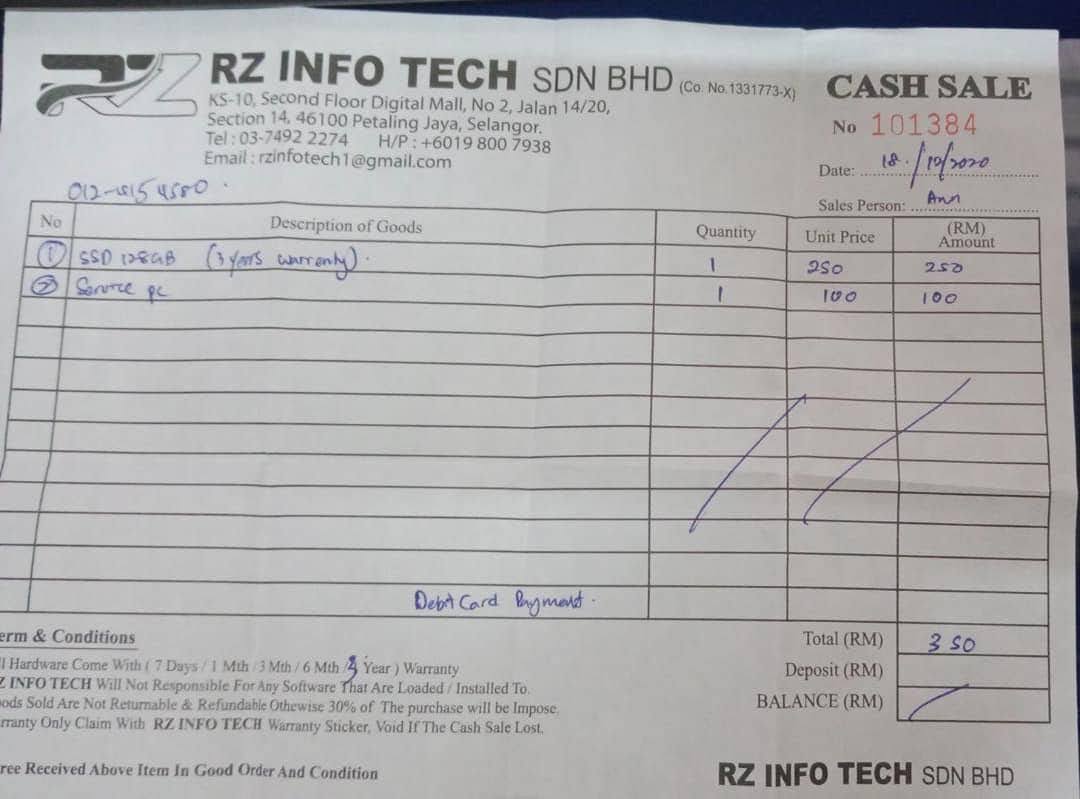 RZ INFO TECH SDN BHD (Co. No.1331773-X)
KS-10, Second Floor Digital Mall, No 2, Jalan 14/20,
Section 14, 46100 Petaling Jaya, Selangor.
Tel : 03-7492 2274 H/P : +6019 800 7938
Email : rzinfotech1@gmail.com
CASH SALE
No 101384
Date: 18./10/2020
Sales Person: Ann
No Description of Goods Quantity Unit Price (RM) Amount
① SSD 128GB (3 years warrenty). 1 250 250
② Service pc 1 100 100
Debit Card Payment.
Total (RM) 350
Deposit (RM)
BALANCE (RM)
erm & Conditions
l Hardware Come With ( 7 Days / 1 Mth / 3 Mth / 6 Mth / 3 Year ) Warranty
Z INFO TECH Will Not Responsible For Any Software That Are Loaded / Installed To.
oods Sold Are Not Returnable & Refundable Othewise 30% of The purchase will be Impose.
rranty Only Claim With RZ INFO TECH Warranty Sticker, Void If The Cash Sale Lost.
ree Received Above Item In Good Order And Condition
RZ INFO TECH SDN BHD